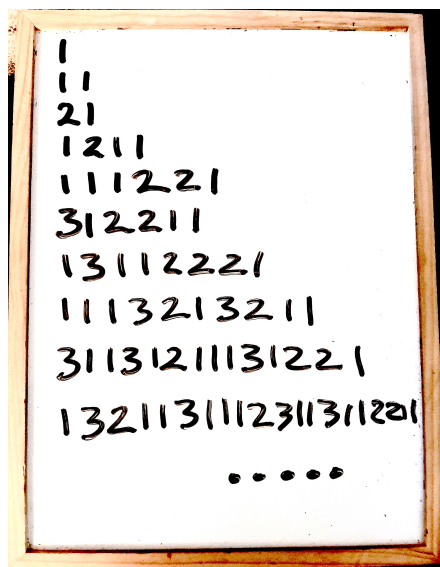 1
11
21
1211
111221
312211
13112221
1113213211
31131211131221
13211311123113112201